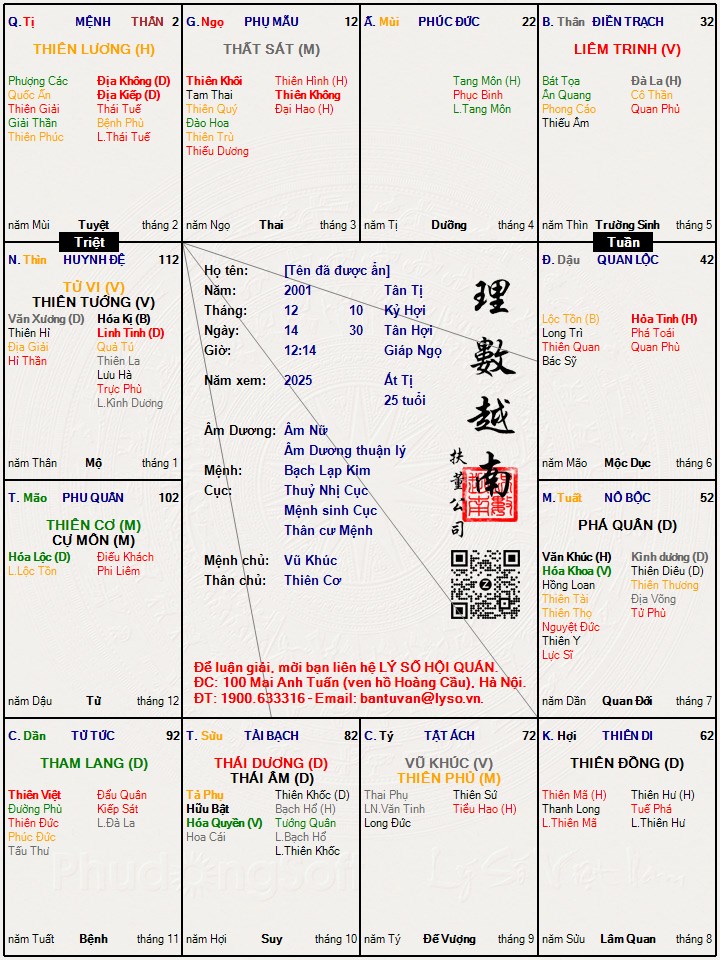 Q. Tị MỆNH THÂN 2
THIÊN LƯƠNG (H)
Phượng Các Địa Không (D)
Quốc Ấn Địa Kiếp (D)
Thiên Giải Thái Tuế
Giải Thần Bệnh Phù
Thiên Phúc L.Thái Tuế
năm Mùi Tuyệt tháng 2
G. Ngọ PHỤ MẪU 12
THẤT SÁT (M)
Thiên Khôi Thiên Hình (H)
Tam Thai Thiên Không
Thiên Quý Đại Hao (H)
Đào Hoa
Thiên Trù
Thiếu Dương
năm Ngọ Thai tháng 3
Ấ. Mùi PHÚC ĐỨC 22
Tang Môn (H)
Phục Binh
L.Tang Môn
năm Tị Dưỡng tháng 4
B. Thân ĐIỀN TRẠCH 32
LIÊM TRINH (V)
Bát Tọa Đà La (H)
Ân Quang Cô Thần
Phong Cáo Quan Phủ
Thiếu Âm
năm Thìn Trường Sinh tháng 5
Triệt
Tuần
N. Thìn HUYNH ĐỆ 112
TỬ VI (V)
THIÊN TƯỚNG (V)
Văn Xương (D) Hóa Kị (B)
Thiên Hỉ Linh Tinh (D)
Địa Giải Quả Tú
Hỉ Thần Thiên La
Lưu Hà
Trực Phù
L.Kình Dương
năm Thân Mộ tháng 1
Họ tên: [Tên đã được ẩn]
Năm: 2001 Tân Tị
Tháng: 12 10 Kỷ Hợi
Ngày: 14 30 Tân Hợi
Giờ: 12:14 Giáp Ngọ
Năm xem: 2025 Ất Tị
25 tuổi
Âm Dương: Âm Nữ
Âm Dương thuận lý
Mệnh: Bạch Lạp Kim
Cục: Thuỷ Nhị Cục
Mệnh sinh Cục
Thân cư Mệnh
Mệnh chủ: Vũ Khúc
Thân chủ: Thiên Cơ
理數越南
扶董公司
Z
Để luận giải, mời bạn liên hệ LÝ SỐ HỘI QUÁN.
ĐC: 100 Mai Anh Tuấn (ven hồ Hoàng Cầu), Hà Nội.
ĐT: 1900.633316 - Email: bantuvan@lyso.vn.
Đ. Dậu QUAN LỘC 42
Lộc Tồn (B) Hỏa Tinh (H)
Long Trì Phá Toái
Thiên Quan Quan Phù
Bác Sỹ
năm Mão Mộc Dục tháng 6
T. Mão PHU QUÂN 102
THIÊN CƠ (M)
CỰ MÔN (M)
Hóa Lộc (D) Điếu Khách
L.Lộc Tồn Phi Liêm
năm Dậu Tử tháng 12
M. Tuất NÔ BỘC 52
PHÁ QUÂN (D)
Văn Khúc (H) Kình dương (D)
Hóa Khoa (V) Thiên Diêu (D)
Hồng Loan Thiên Thương
Thiên Tài Địa Võng
Thiên Thọ Tử Phù
Nguyệt Đức
Thiên Y
Lực Sĩ
năm Dần Quan Đới tháng 7
C. Dần TỬ TỨC 92
THAM LANG (D)
Thiên Việt Đẩu Quân
Đường Phù Kiếp Sát
Thiên Đức L.Đà La
Phúc Đức
Tấu Thư
năm Tuất Bệnh tháng 11
T. Sửu TÀI BẠCH 82
THÁI DƯƠNG (D)
THÁI ÂM (D)
Tả Phụ Thiên Khốc (D)
Hữu Bật Bạch Hổ (H)
Hóa Quyền (V) Tướng Quân
Hoa Cái L.Bạch Hổ
L.Thiên Khốc
năm Hợi Suy tháng 10
C. Tý TẬT ÁCH 72
VŨ KHÚC (V)
THIÊN PHỦ (M)
Thai Phụ Thiên Sứ
LN.Văn Tinh Tiểu Hao (H)
Long Đức
năm Tý Đế Vượng tháng 9
K. Hợi THIÊN DI 62
THIÊN ĐỒNG (D)
Thiên Mã (H) Thiên Hư (H)
Thanh Long Tuế Phá
L.Thiên Mã L.Thiên Hư
năm Sửu Lâm Quan tháng 8